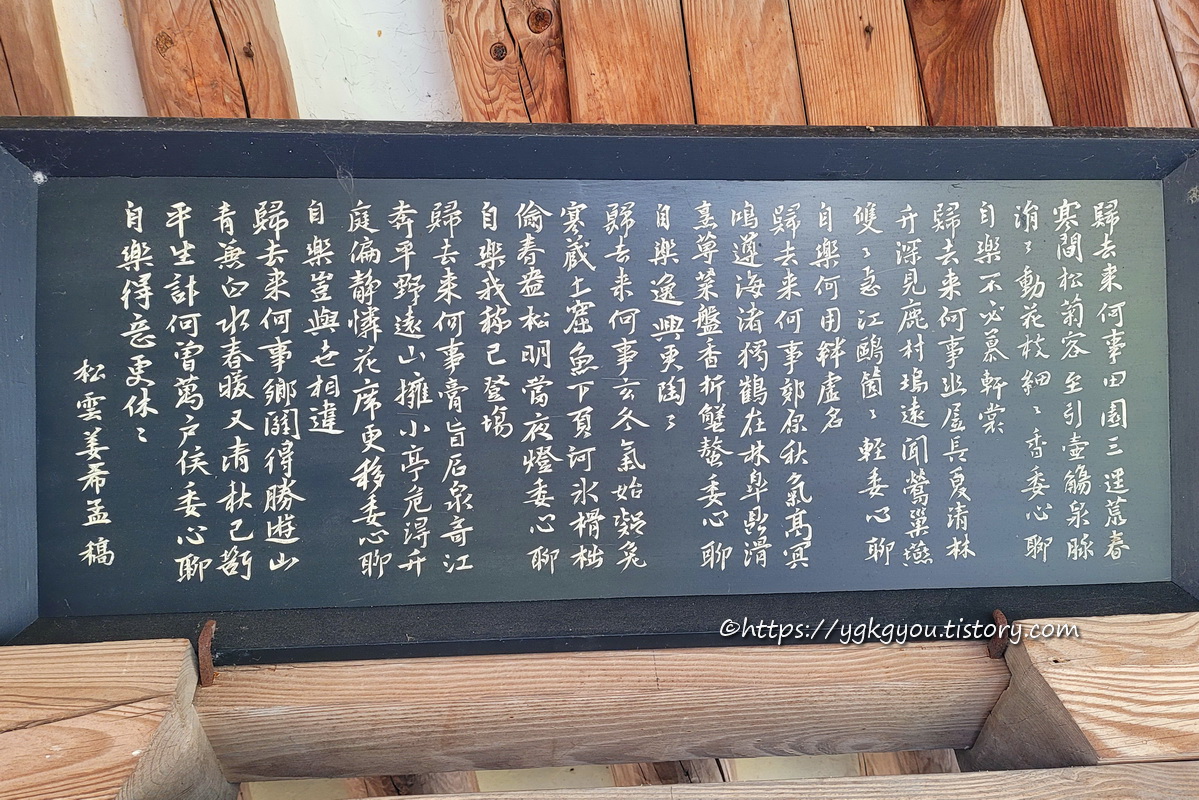 歸去来何事田園三逕暮春
寒間松菊容至引壺觴泉脉
涓〻動花枝細〻香委心聊
自樂不必慕軒裳
歸去来何事幽居長夏清林
卉深見鹿村塢遠聞鶯巢燕
雙〻急江鷗箇〻輕委心聊
自樂何用絆虛名
歸去来何事郊原秋氣髙冥
鳴遵海渚獨鶴在林皐鼎滑
烹蓴菜盤香折蟹螯委心聊
自樂逸興更陶〻
歸去来何事玄冬氣始凝兔
寒蔵土窟魚下負河氷榾柮
偷春盎松明當夜燈委心聊
自樂我稼已登場
歸去来何事膏旨石泉奇江
奔平野遠山擁小亭危得升
庭偏静憐花席更移委心聊
自樂豈與世相違
歸去来何事鄉關得勝遊山
青兼白水春暖又清秋已斷
平生計何曾萬户侯委心聊
自樂得意更休〻
松雲姜希孟稿
©https://ygkgyou.tistory.com